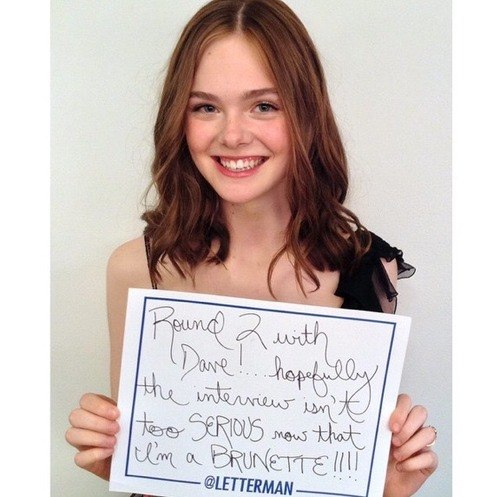 Round 2 with
Dave!....hopefully
the interview isn't
too SERIOUS now that
I'm a BRUNETTE!!!!
@LETTERMAN